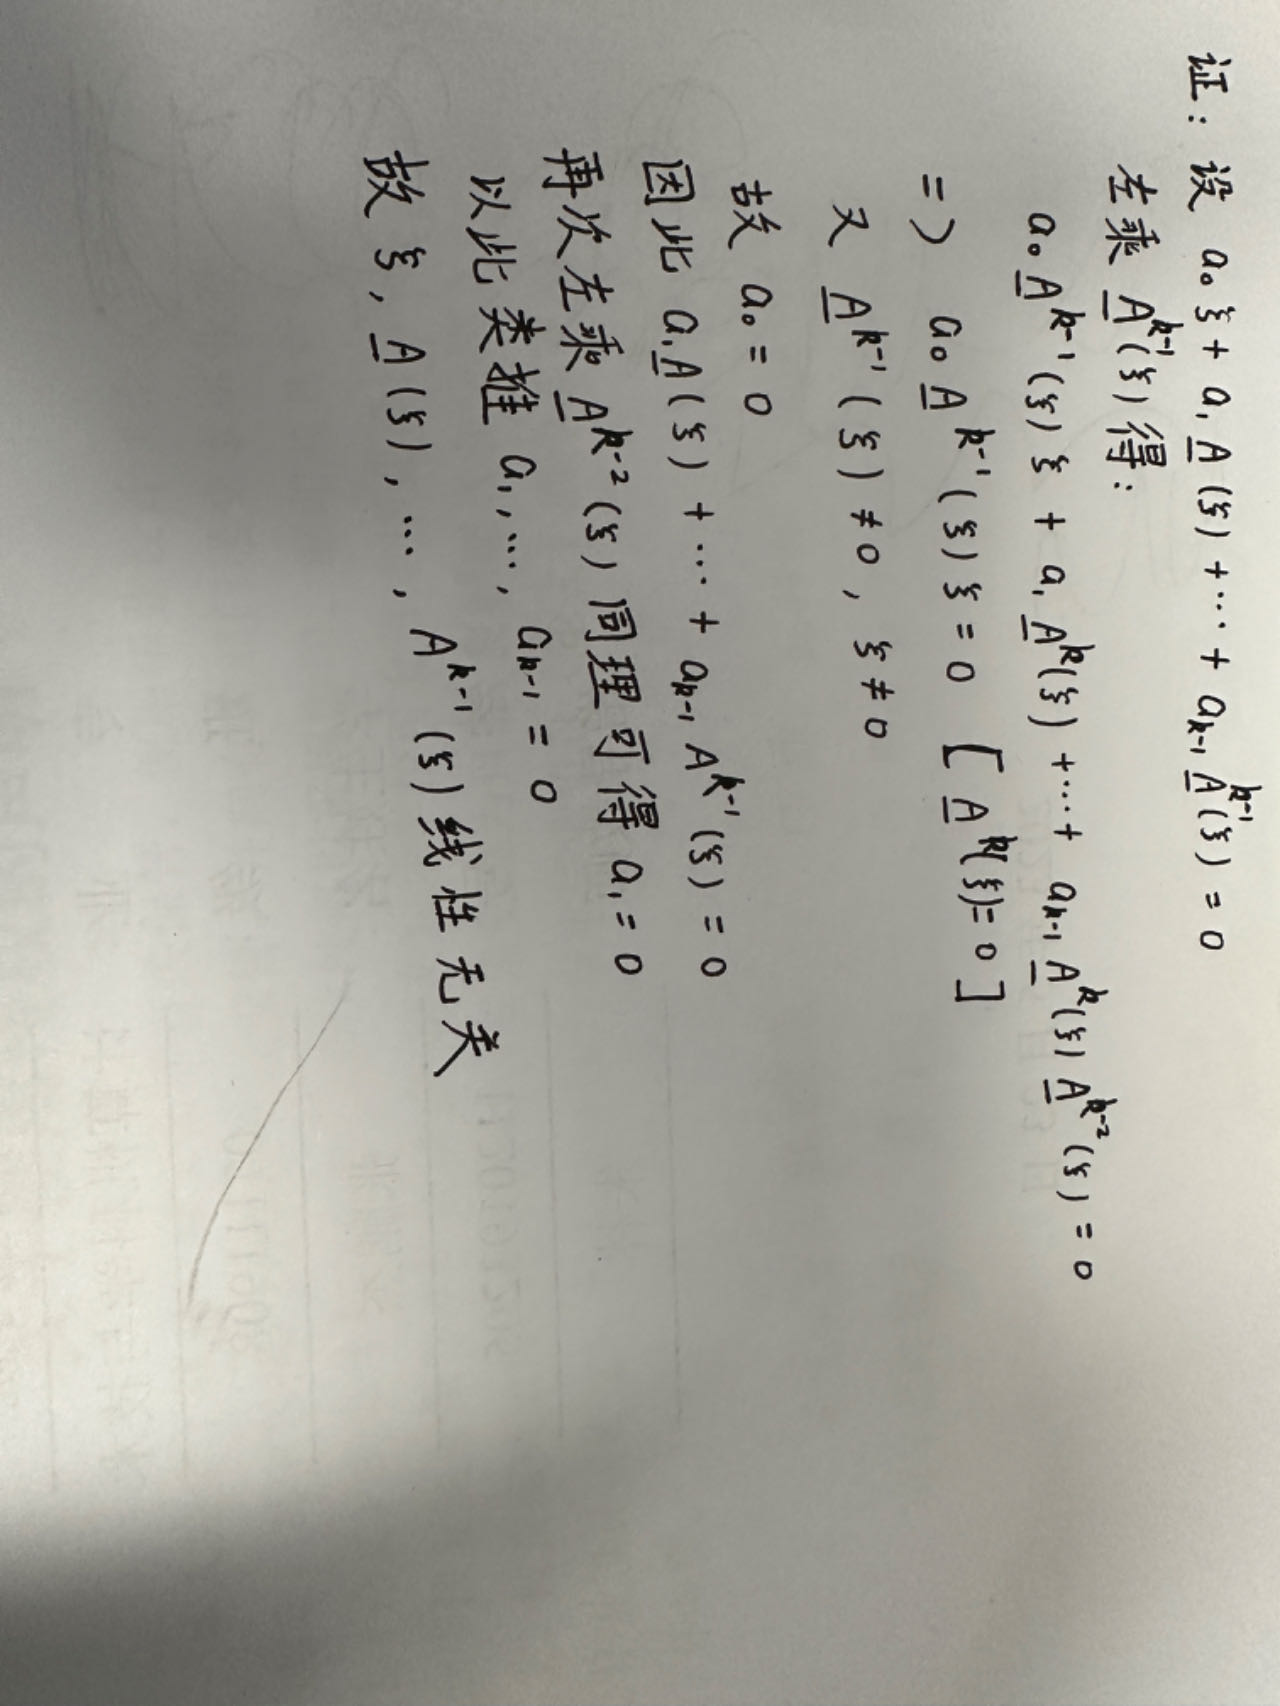 证：设 a₀ξ + a₁A(ξ) + ⋯ + aₖ₋₁Aᵏ⁻¹(ξ) = 0
左乘 Aᵏ⁻¹(ξ) 得：
a₀Aᵏ⁻¹(ξ)ξ + a₁Aᵏ(ξ) + ⋯ + aₖ₋₁Aᵏ(ξ)Aᵏ⁻²(ξ) = 0
=) a₀Aᵏ⁻¹(ξ)ξ = 0 [Aᵏ(ξ) = 0]
又 Aᵏ⁻¹(ξ) ≠ 0, ξ ≠ 0
故 a₀ = 0
因此 a₁A(ξ) + ⋯ + aₖ₋₁Aᵏ⁻¹(ξ) = 0
再次左乘 Aᵏ⁻²(ξ) 同理可得 a₁ = 0
以此类推 a₁, ⋯, aₖ₋₁ = 0
故 ξ, A(ξ), ⋯, Aᵏ⁻¹(ξ) 线性无关